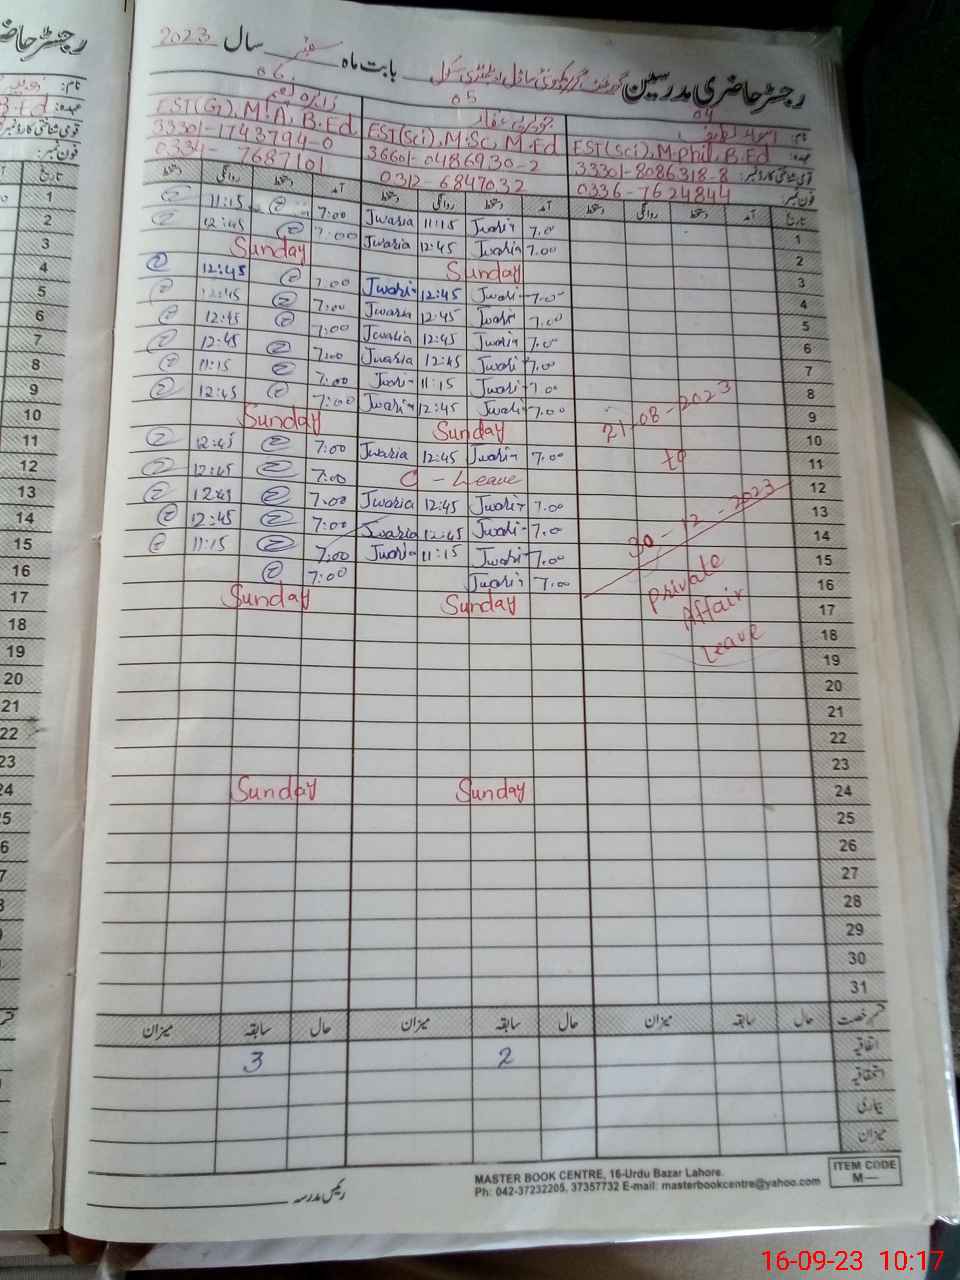 رجسٹر حاضری مدرسین گورنمنٹ گرلز کمیونٹی ماڈل ایلیمنٹری سکول بابت ماہ ستمبر سال 2023
04
05
06
نام:
عہدہ: EST(Sci), M.Phil, B.Ed
EST(Sci), M.Sc, M.Ed
EST(G), M.A, B.Ed
قومی شناختی کارڈ نمبر: 33301-8086318-8
36601-0486930-2
33301-1743794-0
فون نمبر: 0336-7624844
0312-6847032
0334-7687101
تاریخ آمد دستخط روانگی دستخط آمد دستخط روانگی دستخط آمد دستخط روانگی دستخط
1 7.00 Jwaria 11:15 Jwaria 7:00 11:15
2 7.00 Jwaria 12:45 Jwaria 7:00 12:45
3 Sunday Sunday
4 7.00 Jwaria 12:45 Jwaria 7:00 12:45
5 7.00 Jwaria 12:45 Jwaria 7:00 12:45
6 7.00 Jwaria 12:45 Jwaria 7:00 12:45
7 7.00 Jwaria 12:45 Jwaria 7:00 12:45
8 7.00 Jwaria 11:15 Jwaria 7:00 11:15
9 7.00 Jwaria 12:45 Jwaria 7:00 12:45
10 Sunday Sunday
11 7.00 Jwaria 12:45 Jwaria 7:00 12:45
12 C - Leave 7:00 12:45
13 7.00 Jwaria 12:45 Jwaria 7:00 12:45
14 7.00 Jwaria 12:45 Jwaria 7:00 12:45
15 7.00 Jwaria 11:15 Jwaria 7:00 11:15
16 7.00 Jwaria 7:00
17 Sunday Sunday
18
19
20
21
22
23
24 Sunday Sunday
25
26
27
28
29
30
31
21-08-2023
to
30-12-2023
Private
Affair
Leave
قسم رخصت حال سابقہ میزان حال سابقہ میزان حال سابقہ میزان
اتفاقیہ 2 3
استحقاقیہ
بیماری
میزان
رئیس مدرسہ
MASTER BOOK CENTRE, 16-Urdu Bazar Lahore.
Ph: 042-37232205, 37357732 E-mail: masterbookcentre@yahoo.com
ITEM CODE
M—
16-09-23 10:17